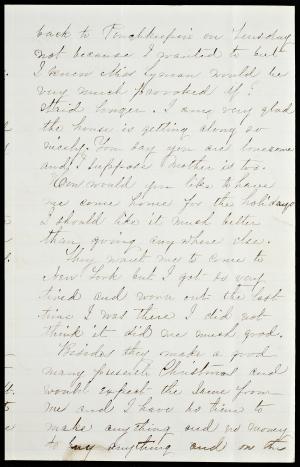 back to Poughkeepsie on Tuesday
not because I wanted to but
I knew Miss Lyman would be
very much provoked if I
staid longer. I am very glad
the house is getting along so
nicely. You say you are lonesome
and I suppose Mother is too.
How would you like to have
me come home for the holidays
I should like it much better
than going any where else.
They want me to come to
New York but I got so very
tired and worn out the last
time I was there I did not
think it did me much good.
Besides they make a good
many presents Christmas and
would expect the same from
me and I have no time to
make anything and no money
to buy anything and on the